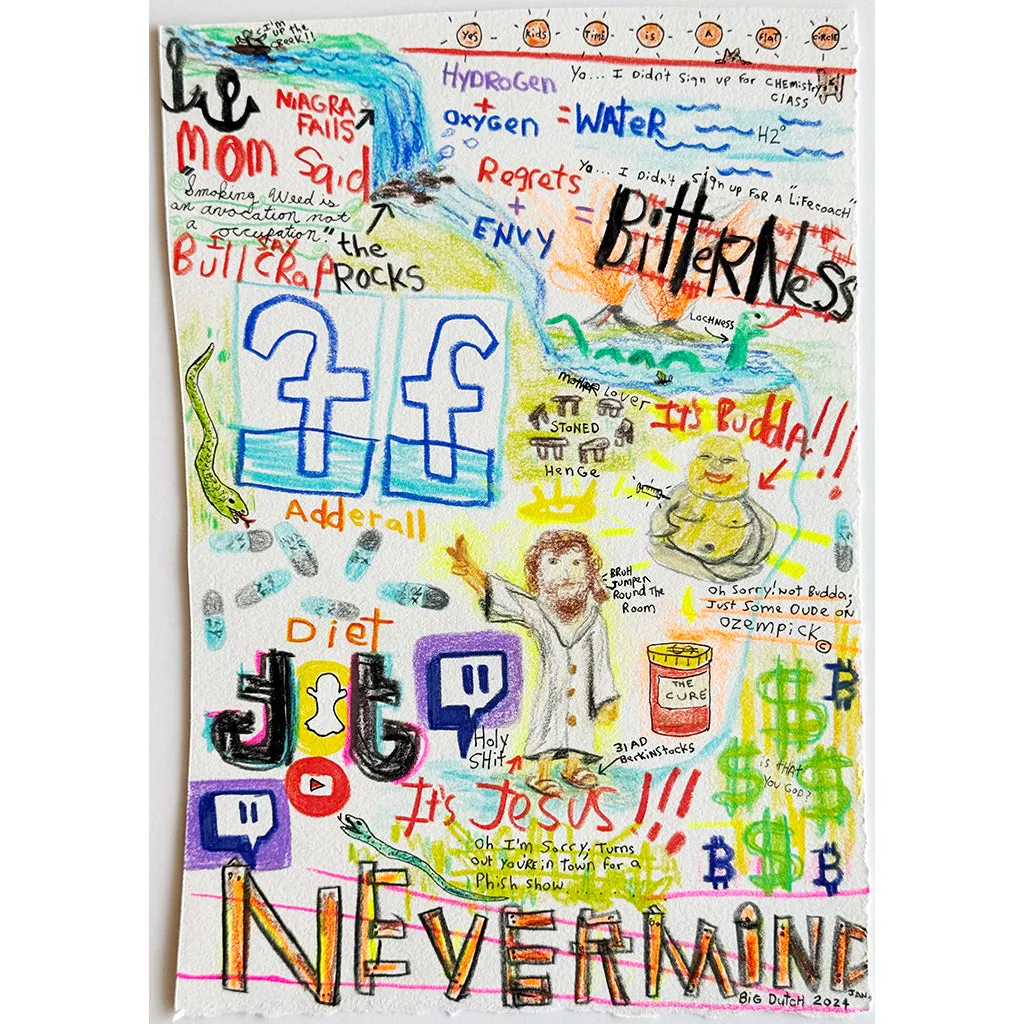 I'm up the creek!!
Yes kids Time is A flat circle
Hydrogen + oxygen = WAteR
H2°
Yo... I Didn't Sign up for CHEmistry
CLASS
NiAGRA
FAlls
MOM Said
"Smoking Weed is
an avocation not
a occupation."
I SAY
Bull CRAP
the
ROCKS
Regrets + ENVY = BitterNess
Yo... I Didn't Sign up FOR A "Lifecoach"
LOCHNESS
MOTHER LOVER
STONED
HENGE
It's Budda!!!
oh Sorry! Not Budda;
Just Some Dude on
OZEMPICK ©
Adderall
BRUH
Jumpen
Round The
Room
Diet
THE
CURE
Holy
SHit
31 AD
BerkinStocks
is THAT
You GOD?
It's Jesus!!!
Oh I'm Sorry, Turns
out you're in town for a
Phish show.......
NEVERMiND
BiG DutcH 2024 JAN.